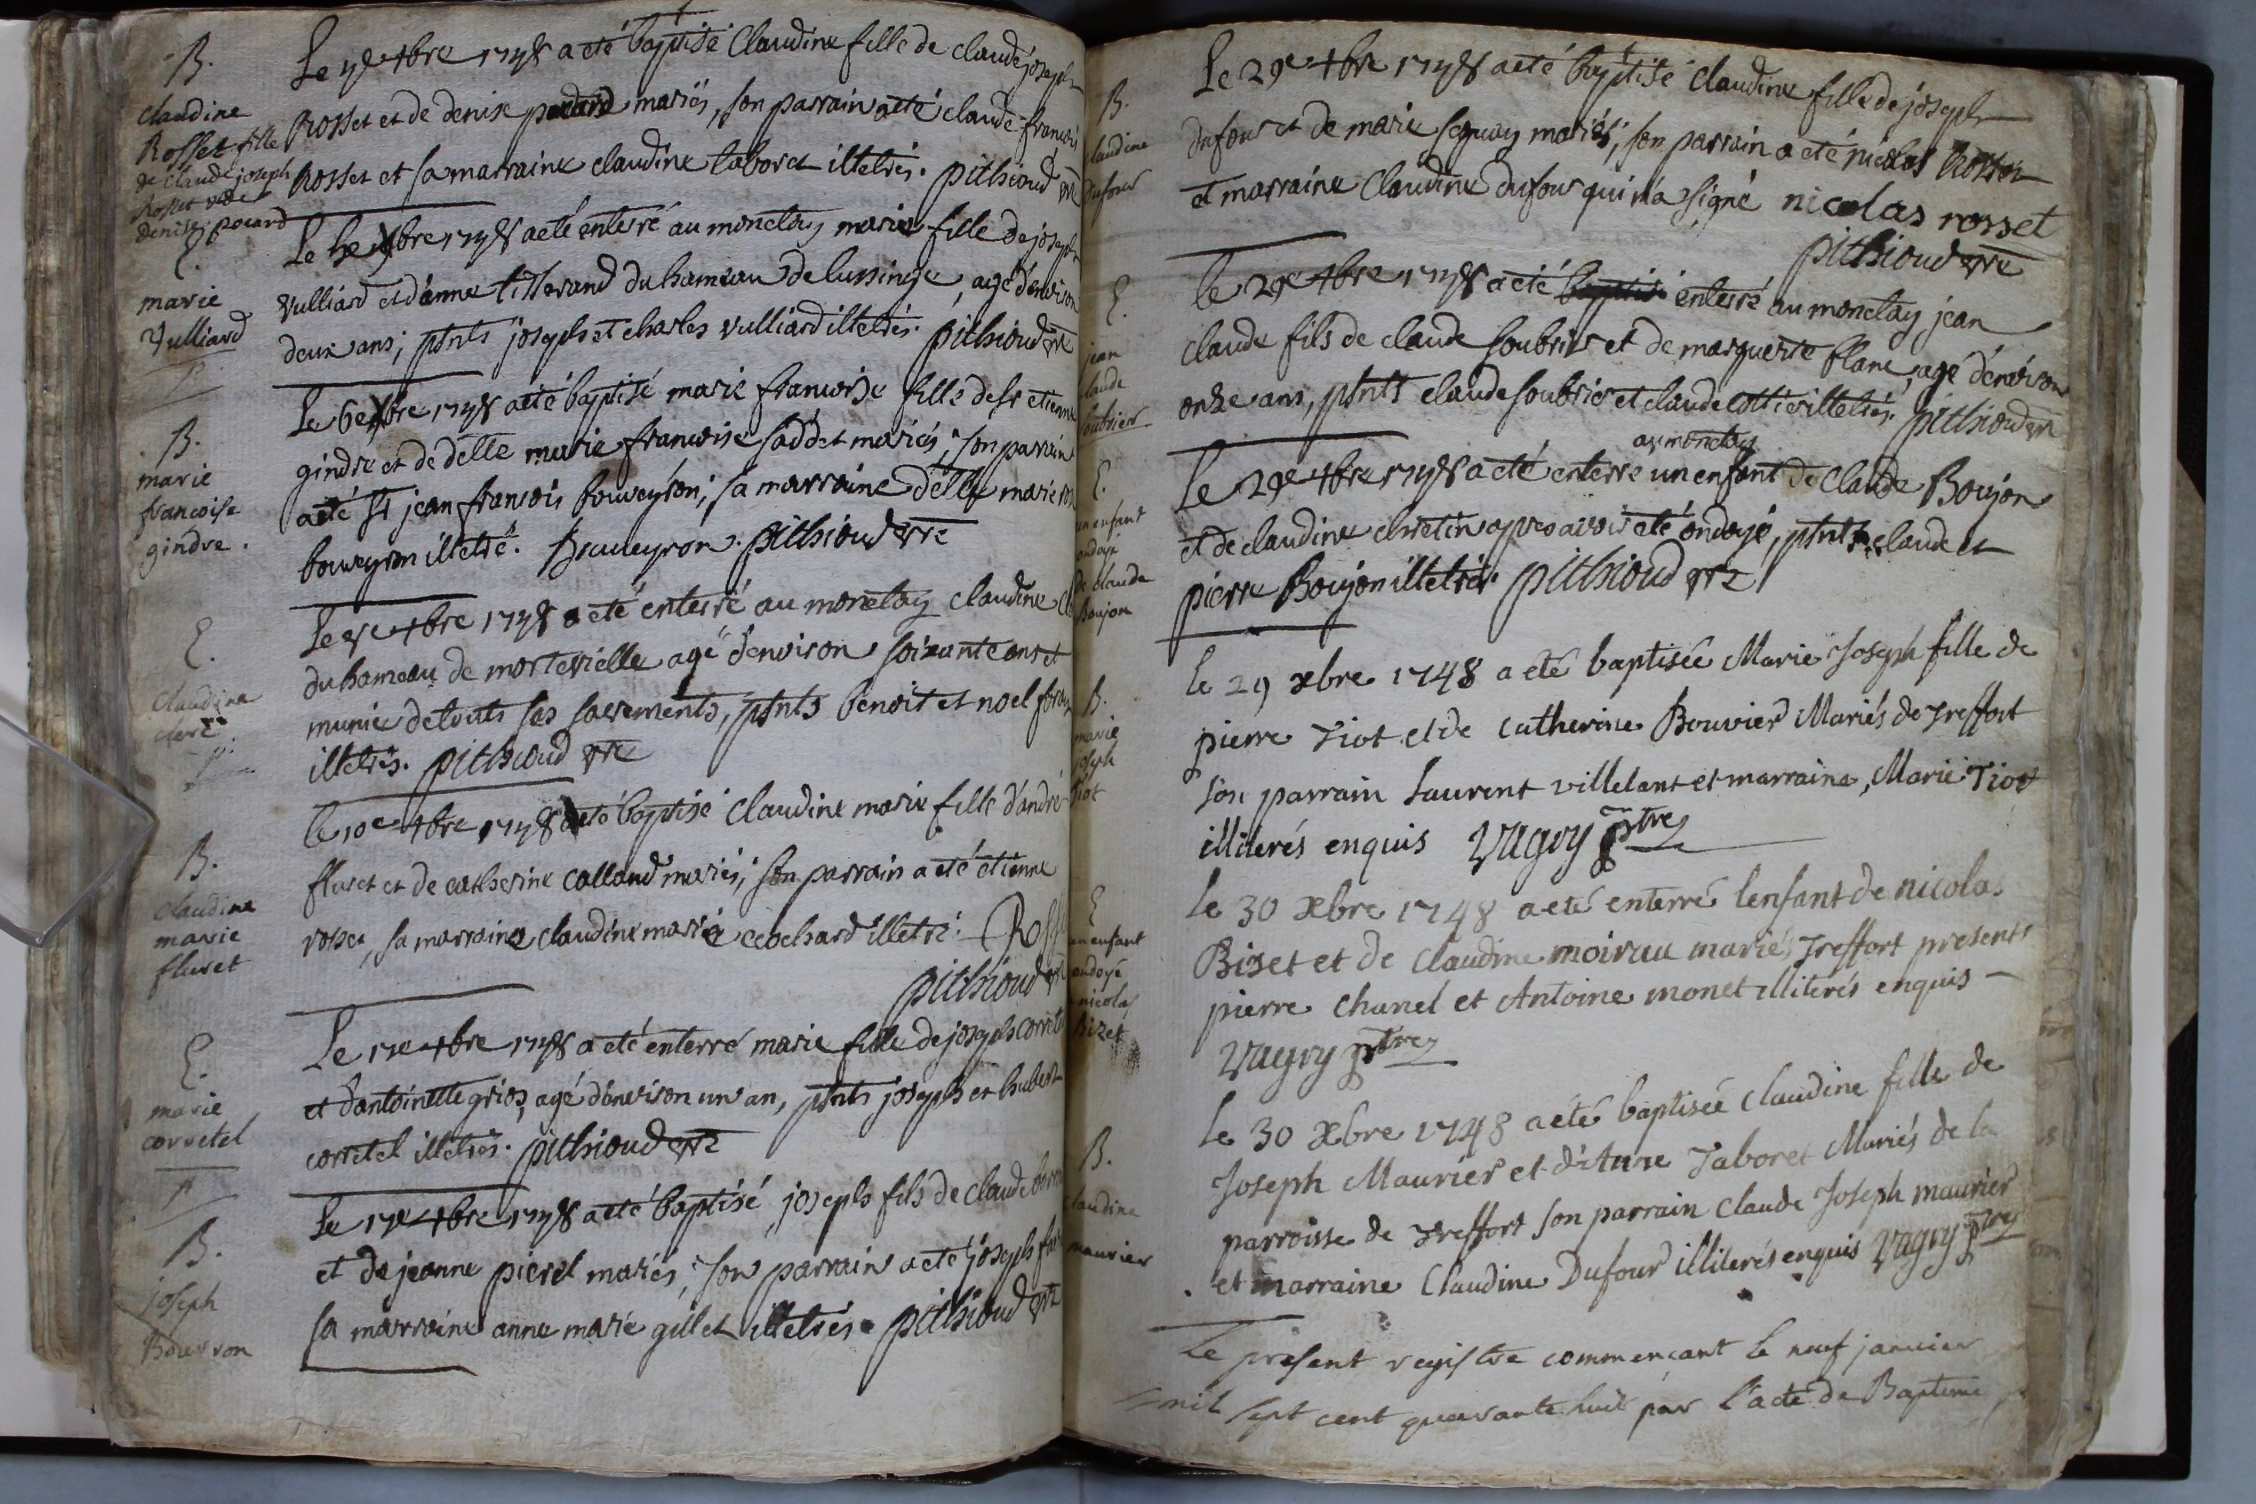 B.
claudine
Rosset fille
de claude joseph
Rosset et de
denise pocard
Le 4e xbre 1748 a eté baptisé Claudine fille de claude joseph
Rosset et de denise mariés, son parrain a eté claude françois
Rosset et sa marraine claudine taboret illetrés. pithioud vre
E.
marie
Vulliard
Le 5e xbre 1748 a eté enterré au monetay marie fille de joseph
vulliard et d'anne tisserand du hameau de lussinge, agé d'environ
deux ans, pnts joseph et charles vulliard illetrés. pithioud vre
B.
marie
francoise
gindre.
Le 6e xbre 1748 a eté baptisé marie francoise fille de sr etienne
gindre et de delle marie francoise saddet mariés, son parrain
a eté sr jean francois bouveyron, sa marraine delle marie
bouveyron illetré. Bouveyron. pithioud vre
E.
claudine
clerc
Le 8e xbre 1748 a eté enterré au monetay claudine
du hameau de mortevielle agé d'environ soixante ans et
munie de touts ses sacrements, pnts benoit et noel
illetrés. pithioud vre
B.
claudine
marie
fluret
le 10e xbre 1748 a eté baptisé Claudine marie fille d'andré
fluret et de catherine calland mariés, son parrain a eté etienne
rosset, sa marraine claudine marie cochard illetré.
pithioud vre
E.
marie
corretel
Le 17e xbre 1748 a eté enterré marie fille de joseph corretel
et d'antoinette grios, agé d'environ un an, pnts joseph et hubert
corretel illetrés. pithioud vre
B.
joseph
Bourron
Le 17e xbre 1748 a eté baptisé joseph fils de claude
et de jeanne pierel mariés, son parrain a eté joseph
sa marraine anne marie gillet illetrés. pithioud vre
B.
claudine
dufour
Le 29e xbre 1748 a eté baptisé claudine fille de joseph
dufour et de marie sequay mariés, son parrain a eté nicolas Rosset
et marraine Claudine dufour qui n'a signé nicolas rosset
pithioud vre
E.
jean
claude
soubrier
le 29e xbre 1748 a eté baptisé enterré au monetay jean
claude fils de claude soubrier et de marguerite blanc, agé d'environ
onze ans, pnts claude soubrier et claude cottier illetrés. pithioud vre
E.
un enfant
ondoyé
de claude
Boujon
au monetay
Le 29e xbre 1748 a eté enterré un enfant de Claude Boujon
et de claudine chretin apres avoir eté ondoyé, pnts claude et
pierre Boujon illetrés. pithioud vre
B.
marie
joseph
Tiot
le 29 xbre 1748 a eté baptisée Marie Joseph fille de
pierre Tiot et de catherine Bouvier Mariés de Treffort
son parrain Laurent villelant et marraine, Marie Tiot
illiterés enquis Vugoy ptre
E
un enfant
ondoyé
nicolas
Bizet
le 30 xbre 1748 a eté enterré lenfant de nicolas
Bizet et de Claudine moirau mariés Treffort presents
pierre chanel et Antoine monet illiterés enquis –
Vugoy ptre
B.
claudine
maurier
le 30 xbre 1748 a eté baptisée claudine fille de
Joseph Maurier et d'Anne Taboret Mariés de la
parroisse de Treffort son parrain Claude Joseph maurier
et marraine Claudine Dufour illiterés enquis Vugoy ptre
Le present registre commençant le neuf janvier
mil sept cent quarante huit par l'acte de Bapteme